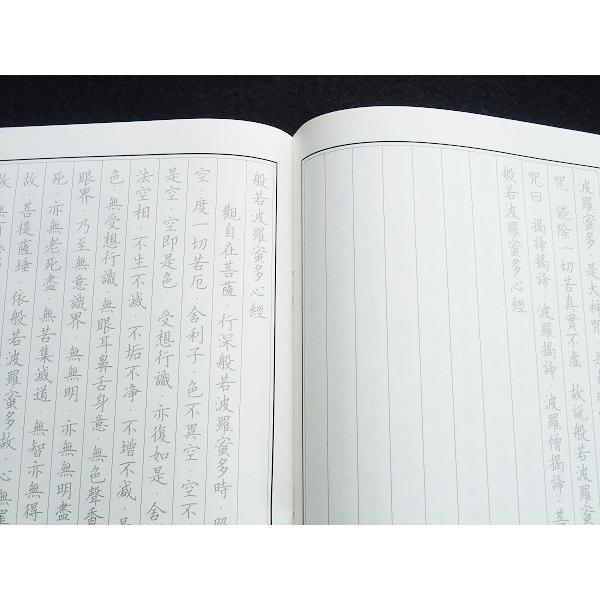 波羅蜜多．是大神咒．是
咒．能除一切苦真實不虛．故說般若波羅蜜
咒曰．揭諦揭諦．波羅揭諦．波羅僧揭諦．菩
般若波羅蜜多心經
般若波羅蜜多心經
觀自在菩薩．行深般若波羅蜜多時．照
空．度一切苦厄．舍利子．色不異空．空不
是空．空即是色．受想行識．亦復如是．舍
法空相．不生不滅．不垢不淨．不增不減．是
色．無受想行識．無眼耳鼻舌身意．無色聲香
眼界．乃至無意識界．無無明．亦無無明盡
死．亦無老死盡．無苦集滅道．無智亦無得
故．菩提薩埵．依般若波羅蜜多故．心無罣
故．無有